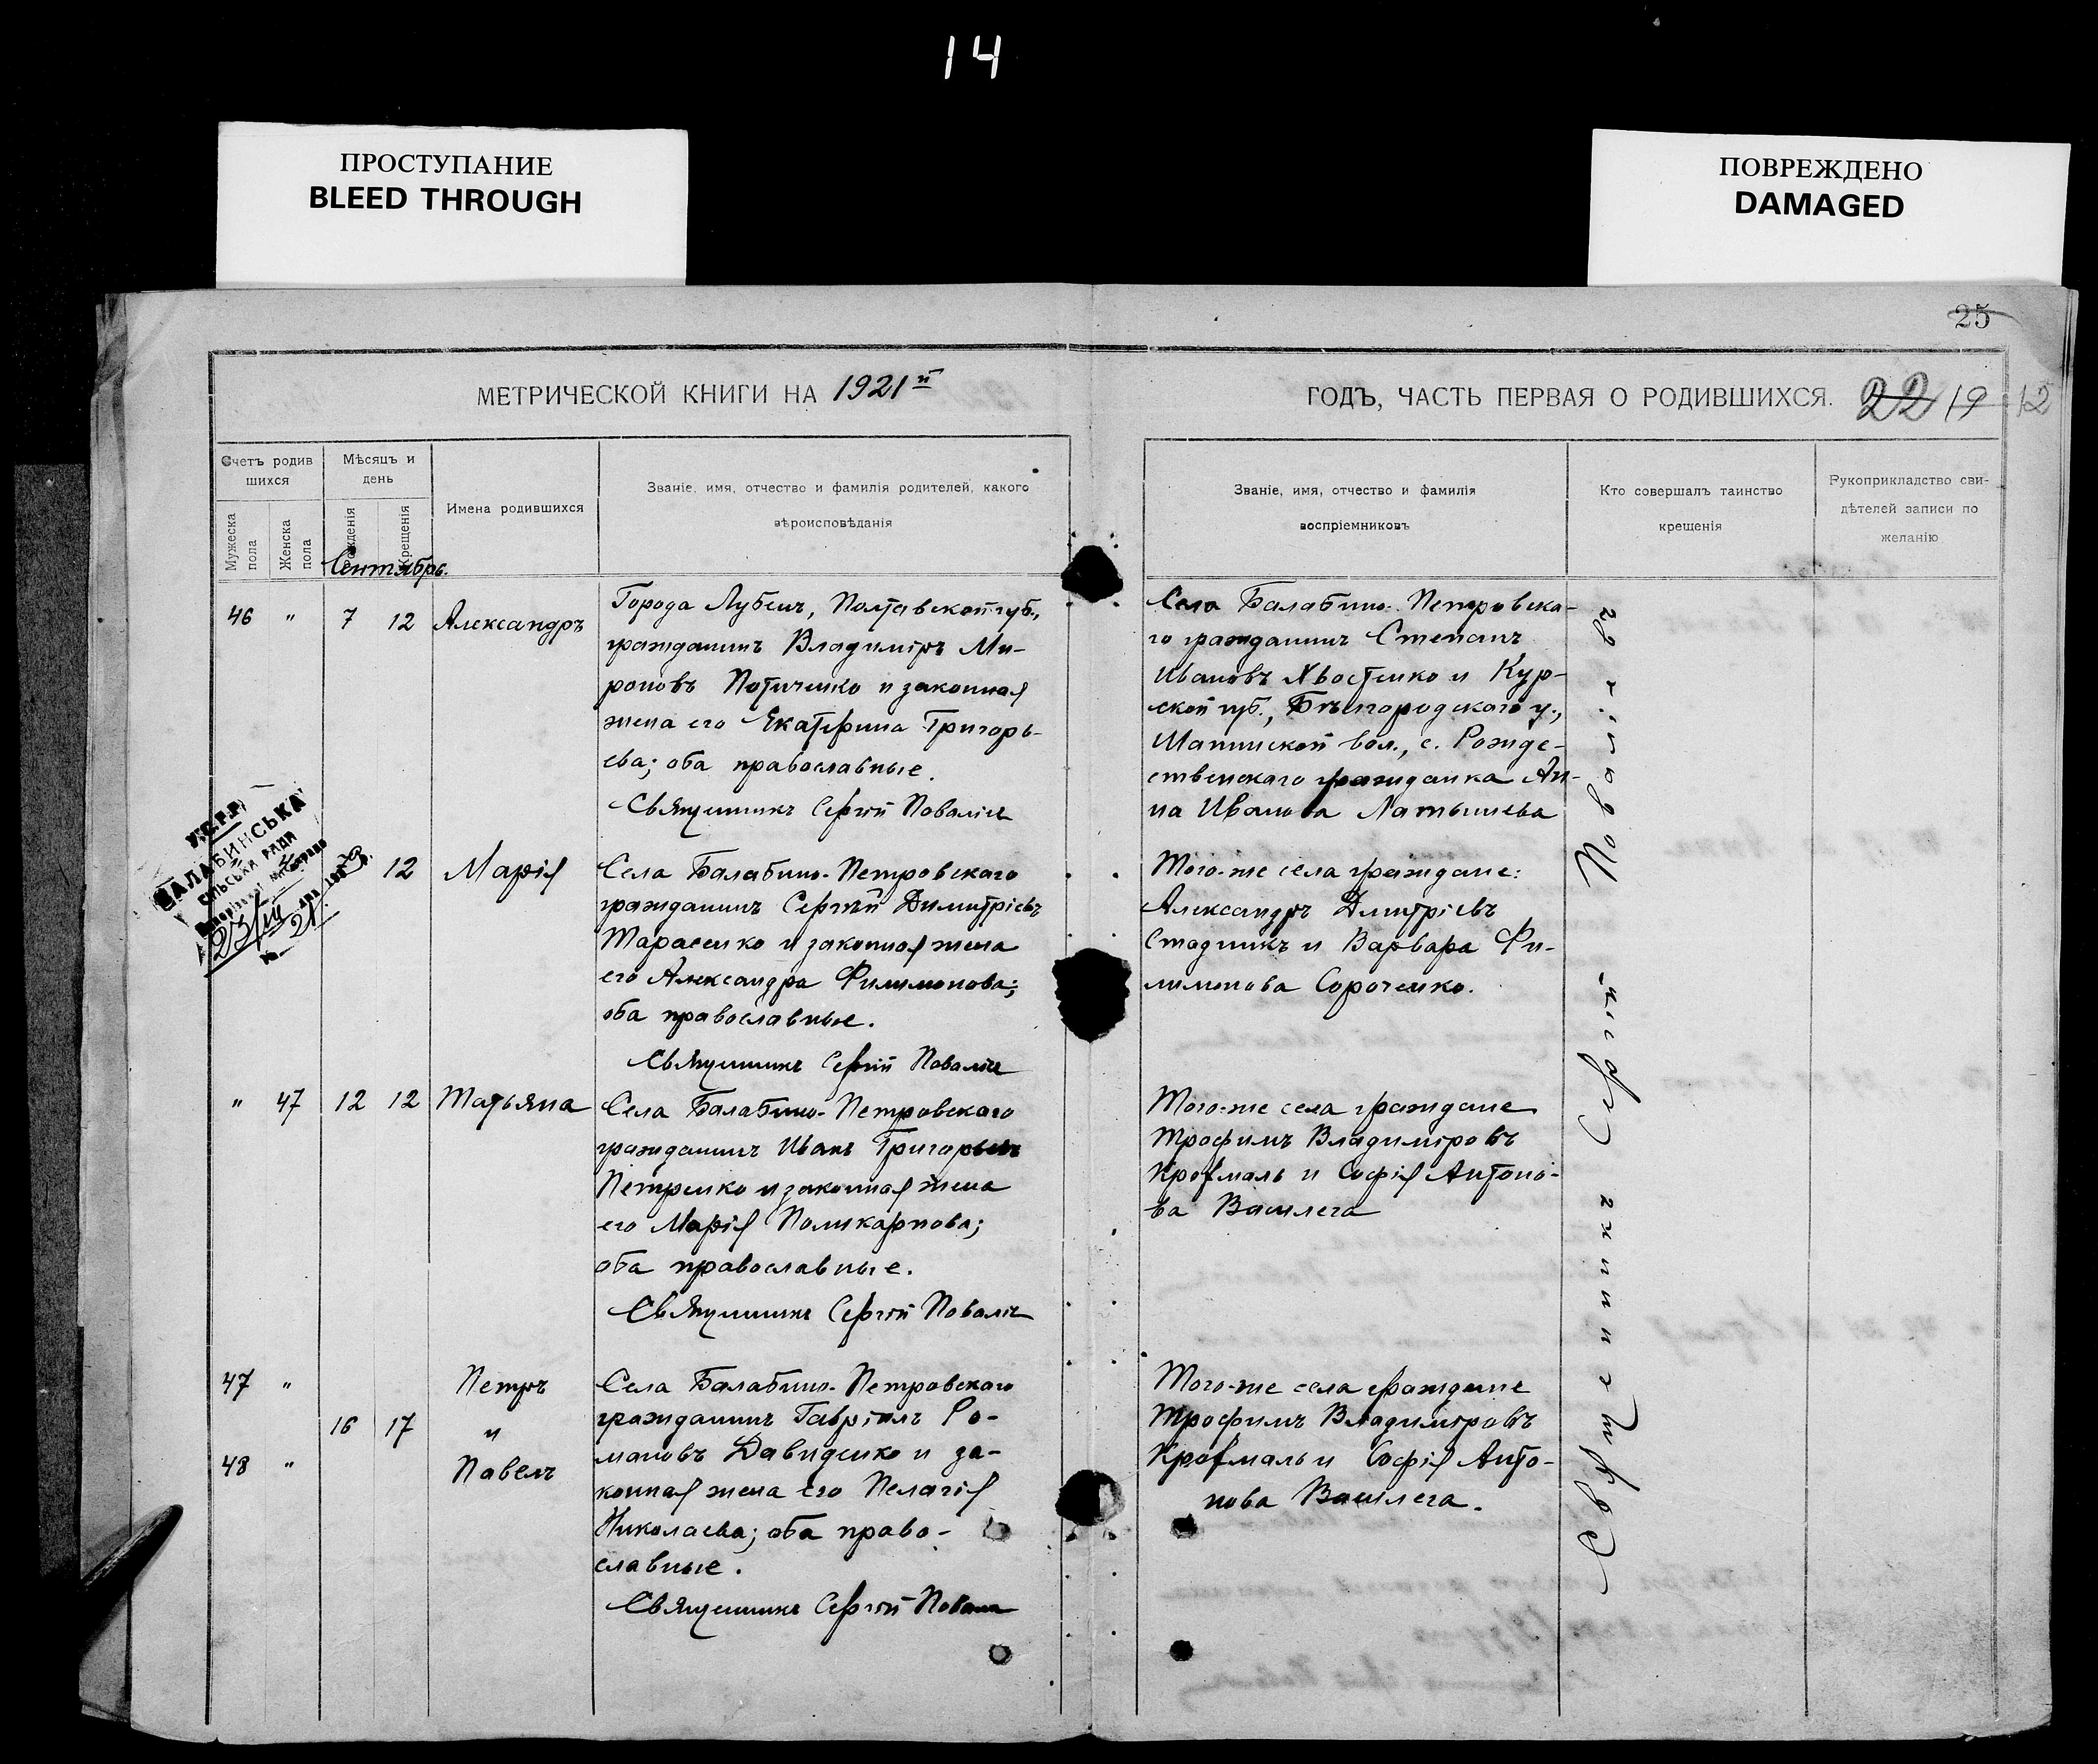 14
ПРОСТУПАНИЕ
BLEED THROUGH
ПОВРЕЖДЕНО
DAMAGED
25
МЕТРИЧЕСКОЙ КНИГИ НА 1921й
ГОДЪ, ЧАСТЬ ПЕРВАЯ О РОДИВШИХСЯ. 22 19 12
Счетъ родив
шихся
Мужеска
пола
Женска
пола
Мѣсяцъ и
день
Рожденія
Крещенія
Сентябрь.
Имена родившихся
Званіе, имя, отчество и фамилія родителей, какого
вѣроисповѣданія
Званіе, имя, отчество и фамилія
воспріемниковъ
Кто совершалъ таинство
крещенія
Рукоприкладство сви-
дѣтелей записи по
желанію
46 " 7 12 Александръ
Города Лубенъ, Полтавской губ.,
гражданинъ Владиміръ Ми-
роновъ Потиченко и законная
жена его Екатерина Григорь-
ева; оба православные.
Священникъ Сергій
Села Балабино-Петровска-
го гражданинъ Степанъ
Ивановъ Хвостенко и Кур-
ской губ., Бѣлгородского у.,
вол., с. Рожде-
ственскаго гражданка Ан-
на Иванова Латышева
У.С.Р.Р.
БАЛАБИНСЬКА
СІЛЬСЬКА РАДА
12 Марія
Села Балабино-Петровскаго
гражданинъ Сергѣй Димитріевъ
Тарасенко и законная жена
его Александра Филимонова;
оба православные.
Священникъ Сергій
Того-же села граждане:
Александръ Димитріевъ
Стадникъ и Варвара Фи-
лимонова Сороченко.
" 47 12 12 Татьяна
Села Балабино-Петровскаго
гражданинъ Иванъ Григорьевъ
Петренко и законная жена
его Марія Поликарпова;
оба православные.
Священникъ Сергій
Того-же села граждане
Трофимъ Владиміровъ
Крохмаль и Софія Антоно-
ва
47 " Петръ
16 17 и
48 " Павелъ
Села Балабино-Петровскаго
гражданинъ Гавріилъ Ро-
мановъ Давиденко и за-
конная жена его Пелагія
Николаева; оба право-
славные.
Священникъ Сергій
Того-же села граждане
Трофимъ Владиміровъ
Крохмаль и Софія Анто-
нова
Священникъ Сергій